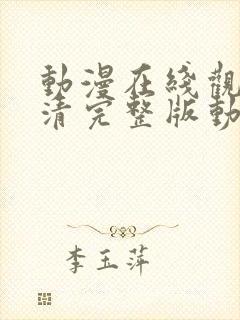 動漫在綫觀
清完整版動
李玉萍